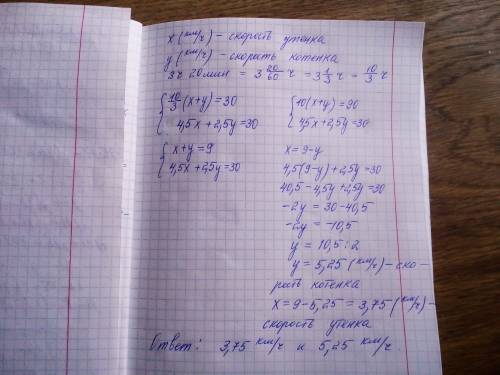 x (км/ч) - скорость утенка
y (км/ч) - скорость котенка
3ч 20мин = 3 20/60 ч = 3 1/3 ч = 10/3 ч
{ 10/3 (x+y) = 30
4,5x + 2,5y = 30
{ 10(x+y) = 90
4,5x + 2,5y = 30
{ x+y = 9
4,5x + 2,5y = 30
x = 9-y
4,5(9-y) + 2,5y = 30
40,5 - 4,5y + 2,5y = 30
-2y = 30 - 40,5
-2y = -10,5
y = 10,5 : 2
y = 5,25 (км/ч) - ско-
рость котенка
x = 9 - 5,25 = 3,75 (км/ч) -
скорость утенка
Ответ: 3,75 км/ч и 5,25 км/ч.